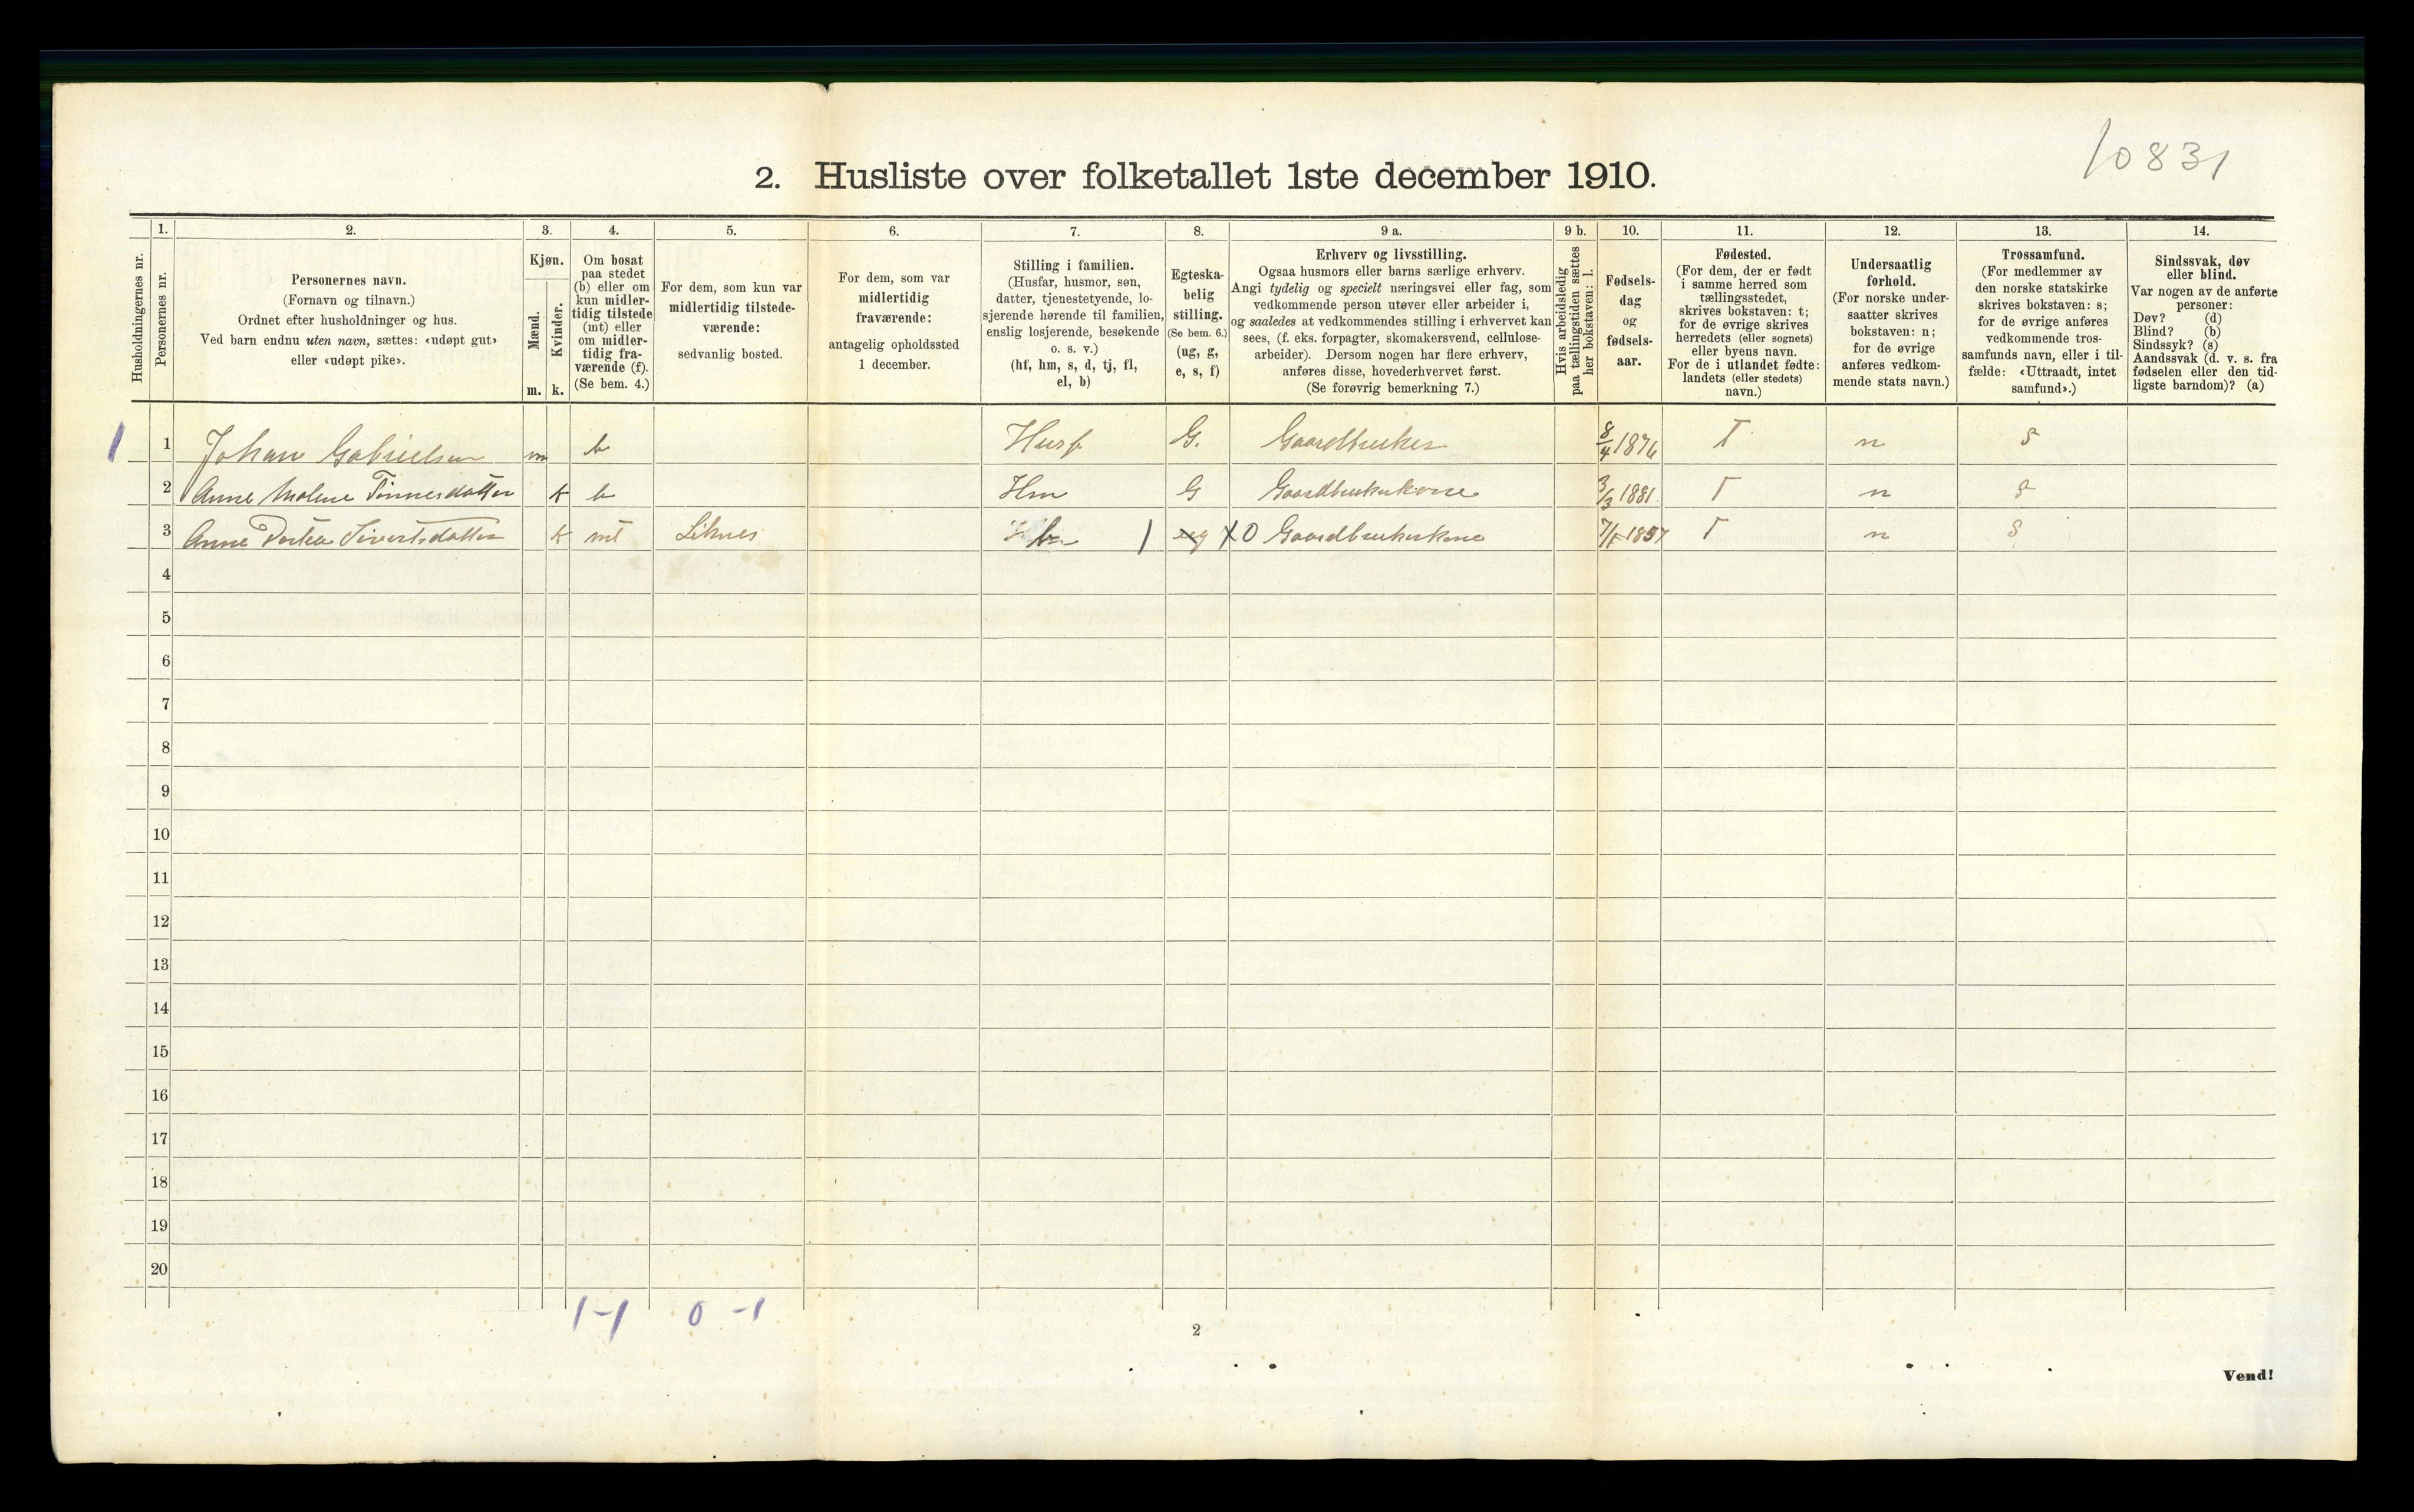 10831
2. Husliste over folketallet 1ste december 1910.
1. 2. 3. 4. 5. 6. 7. 8. 9 a. 9 b. 10. 11. 12. 13. 14.
Husholdningernes nr.
Personernes nr.
Personernes navn.
(Fornavn og tilnavn.)
Ordnet efter husholdninger og hus.
Ved barn endnu uten navn, sættes: «udøpt gut»
eller «udøpt pike».
Kjøn.
Mænd.
Kvinder.
m. k.
Om bosat
paa stedet
(b) eller om
kun midler-
tidig tilstede
(mt) eller
om midler-
tidig fra-
værende (f).
(Se bem. 4.)
For dem, som kun var
midlertidig tilstede-
værende:
sedvanlig bosted.
For dem, som var
midlertidig
fraværende:
antagelig opholdssted
1 december.
Stilling i familien.
(Husfar, husmor, søn,
datter, tjenestetyende, lo-
sjerende hørende til familien,
enslig losjerende, besøkende
o. s. v.)
(hf, hm, s, d, tj, fl,
el, b)
Egteska-
belig
stilling.
(Se bem. 6.)
(ug, g,
e, s, f)
Erhverv og livsstilling.
Ogsaa husmors eller barns særlige erhverv.
Angi tydelig og specielt næringsvei eller fag, som
vedkommende person utøver eller arbeider i,
og saaledes at vedkommendes stilling i erhvervet kan
sees, (f. eks. forpagter, skomakersvend, cellulose-
arbeider). Dersom nogen har flere erhverv,
anføres disse, hovederhvervet først.
(Se forøvrig bemerkning 7.)
Hvis arbeidsledig
paa tællingstiden sættes
her bokstaven: l.
Fødsels-
dag
og
fødsels-
aar.
Fødested.
(For dem, der er født
i samme herred som
tællingsstedet,
skrives bokstaven: t;
for de øvrige skrives
herredets (eller sognets)
eller byens navn.
For de i utlandet fødte:
landets (eller stedets)
navn.)
Undersaatlig
forhold.
(For norske under-
saatter skrives
bokstaven: n;
for de øvrige
anføres vedkom-
mende stats navn.)
Trossamfund.
(For medlemmer av
den norske statskirke
skrives bokstaven: s;
for de øvrige anføres
vedkommende tros-
samfunds navn, eller i til-
fælde: «Uttraadt, intet
samfund».)
Sindssvak, døv
eller blind.
Var nogen av de anførte
personer:
Døv? (d)
Blind? (b)
Sindssyk? (s)
Aandssvak (d. v. s. fra
fødselen eller den tid-
ligste barndom)? (a)
1 1 Johan Gabrielsen m b Husf G. Gaardbruker 8/4 1876 T n S
2 Anne Malene Tønnesdatter k b Hm G Gaardbrukerkone 3/3 1881 T n S
3 Anne Sivertsdatter k mt Liknes b 1 X0 Gaardbrukerkone 1857 T n S
4
5
6
7
8
9
10
11
12
13
14
15
16
17
18
19
20
1-1 0-1
2
Vend!